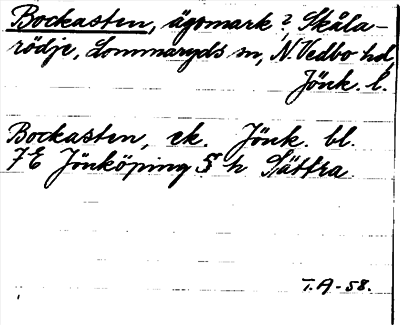 Bockasten, ägomark i Skåla-
rödje, Lommaryds sn, N. Vedbo hd,
Jönk. l.
Bockasten, ek. Jönk. bl.
7E Jönköping S h Sättra
T.A-58.